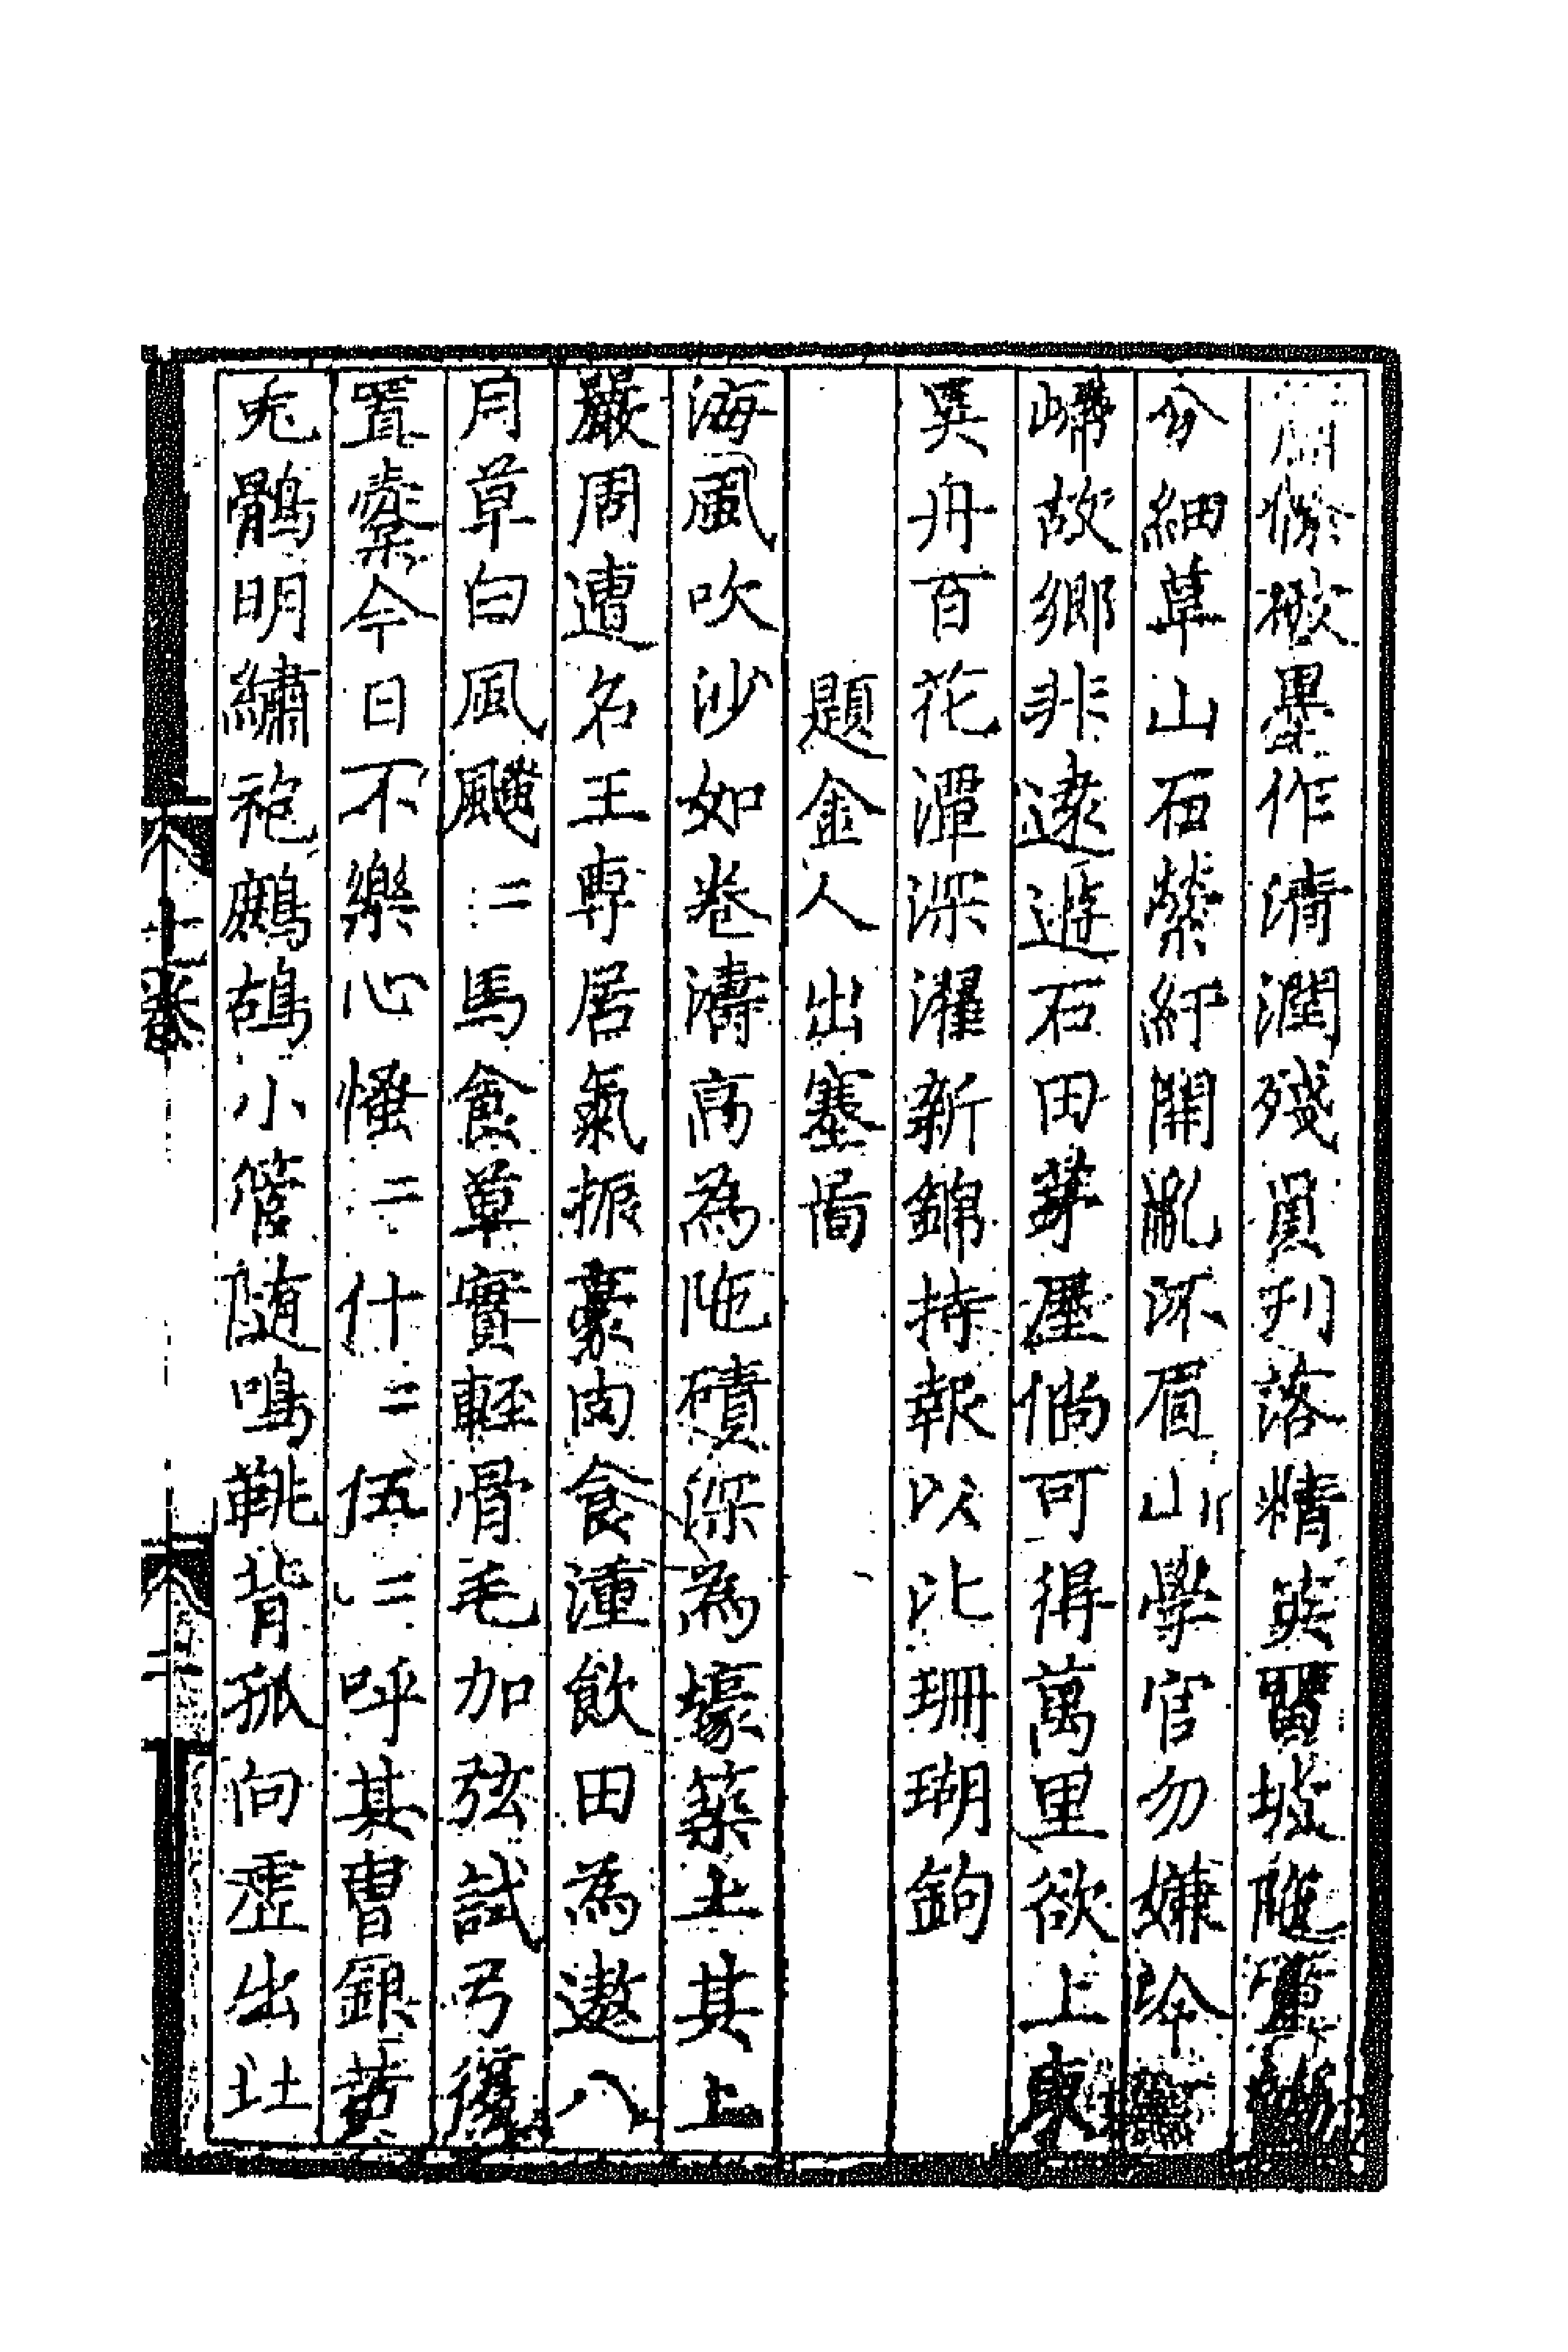 破墨作清潤殘質刋落精英留坡陁
分細草山石縈紆開亂流眉山學官勿嫌冷
嶓故鄉非遠遊石田茅屋儻可得萬里欲上東
吳舟百花潭深濯新錦持報以比珊瑚鉤
題金人出塞圖
海風吹沙如卷濤高為陁磧深為壕築土其上
嚴周遭名王專居氣振豪肉食湩飲田為遨八
月草白風颾〻馬食草實輕骨毛加弦試弓復
置櫜今日不樂心慅〻什〻伍〻呼其曹銀黃
兔鶻明繡袍鷓鴣小管随鳴鞉背孤向虛出北